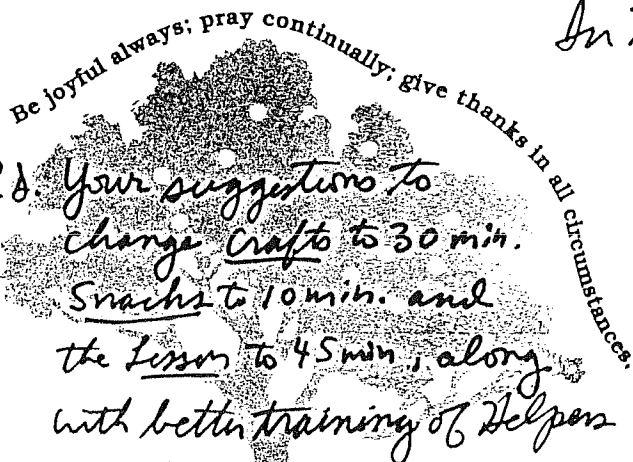 Be joyful always; pray continually; give thanks in all circumstances.
In
Your suggestions to
change crafts to 30 min.
Snacks to 10 min. and
the Lesson to 45 min., along
with better training of Helpers